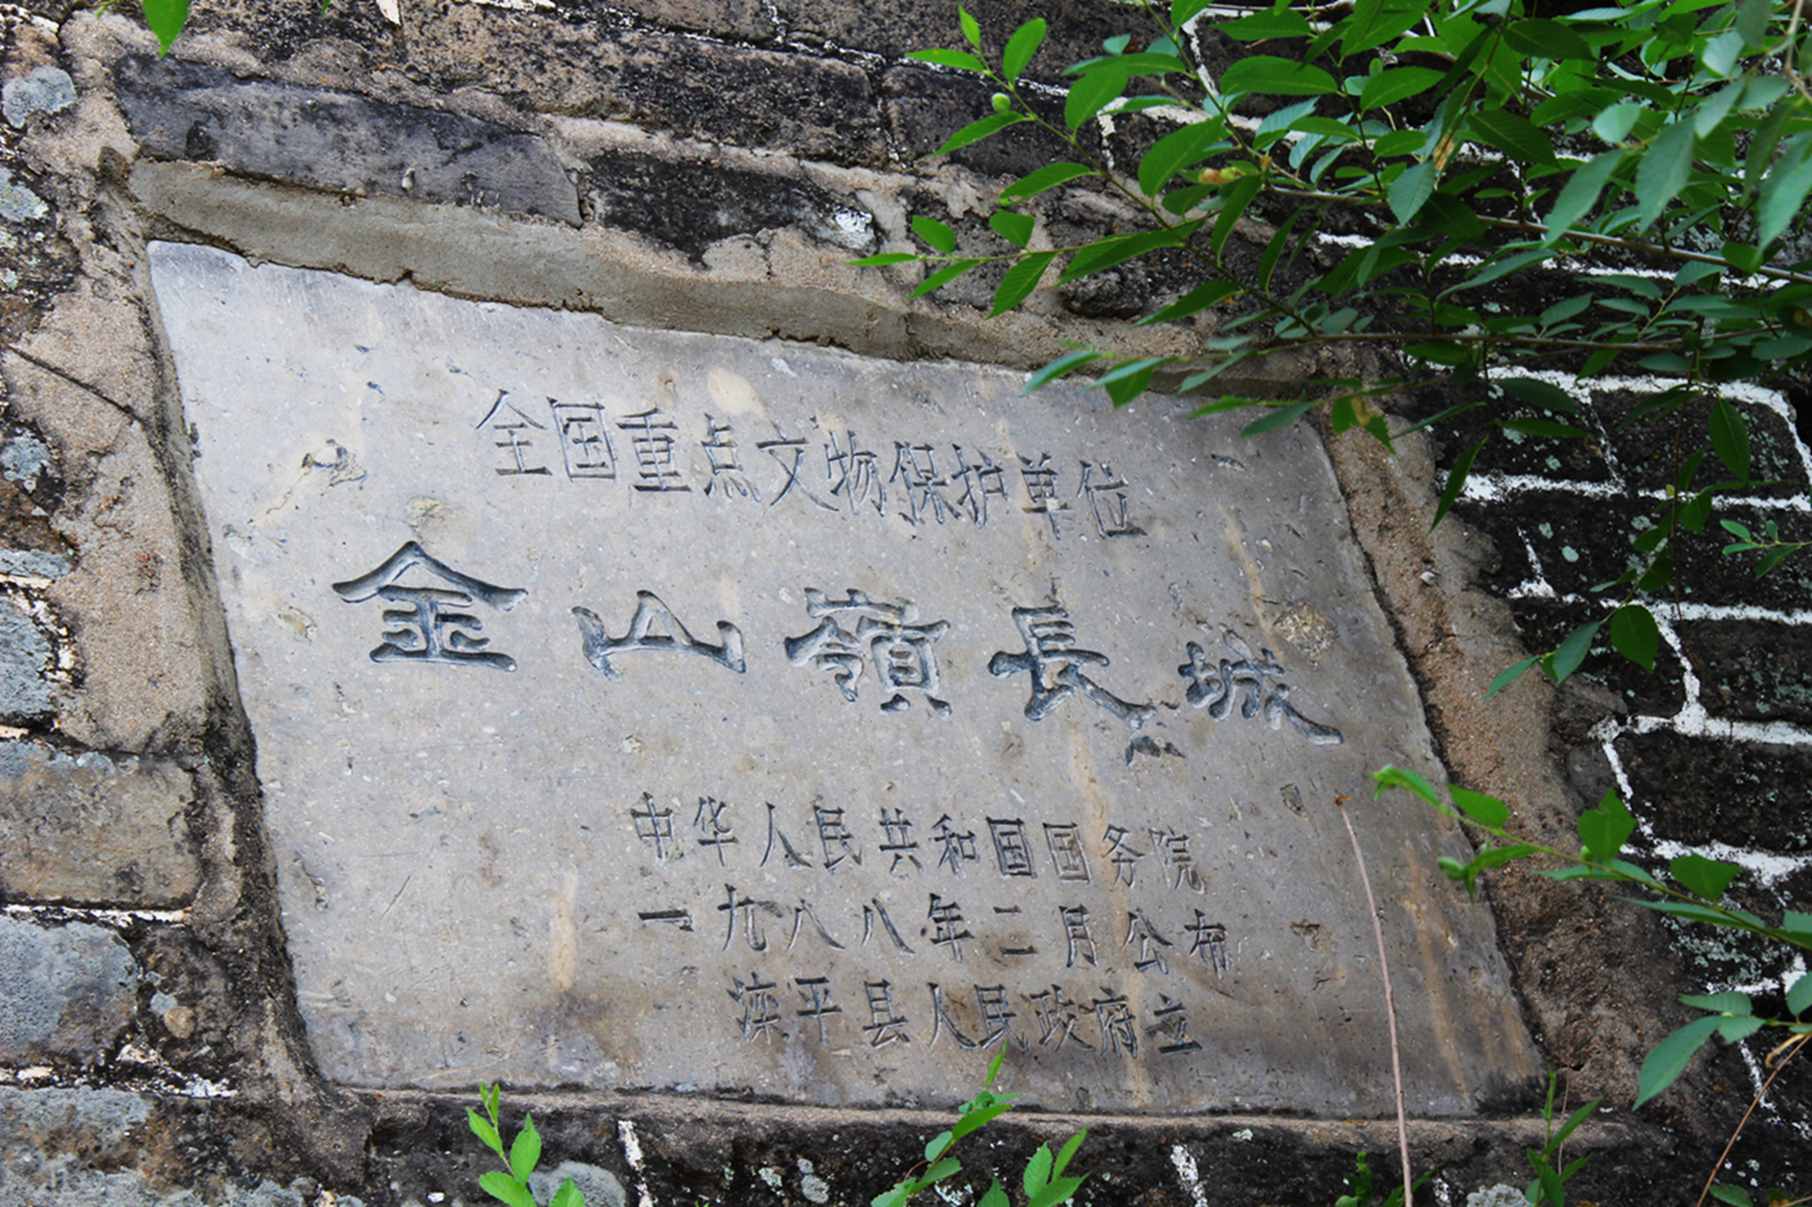 全国重点文物保护单位
金山嶺長城
中华人民共和国国务院
一九八八年二月公布
滦平县人民政府立